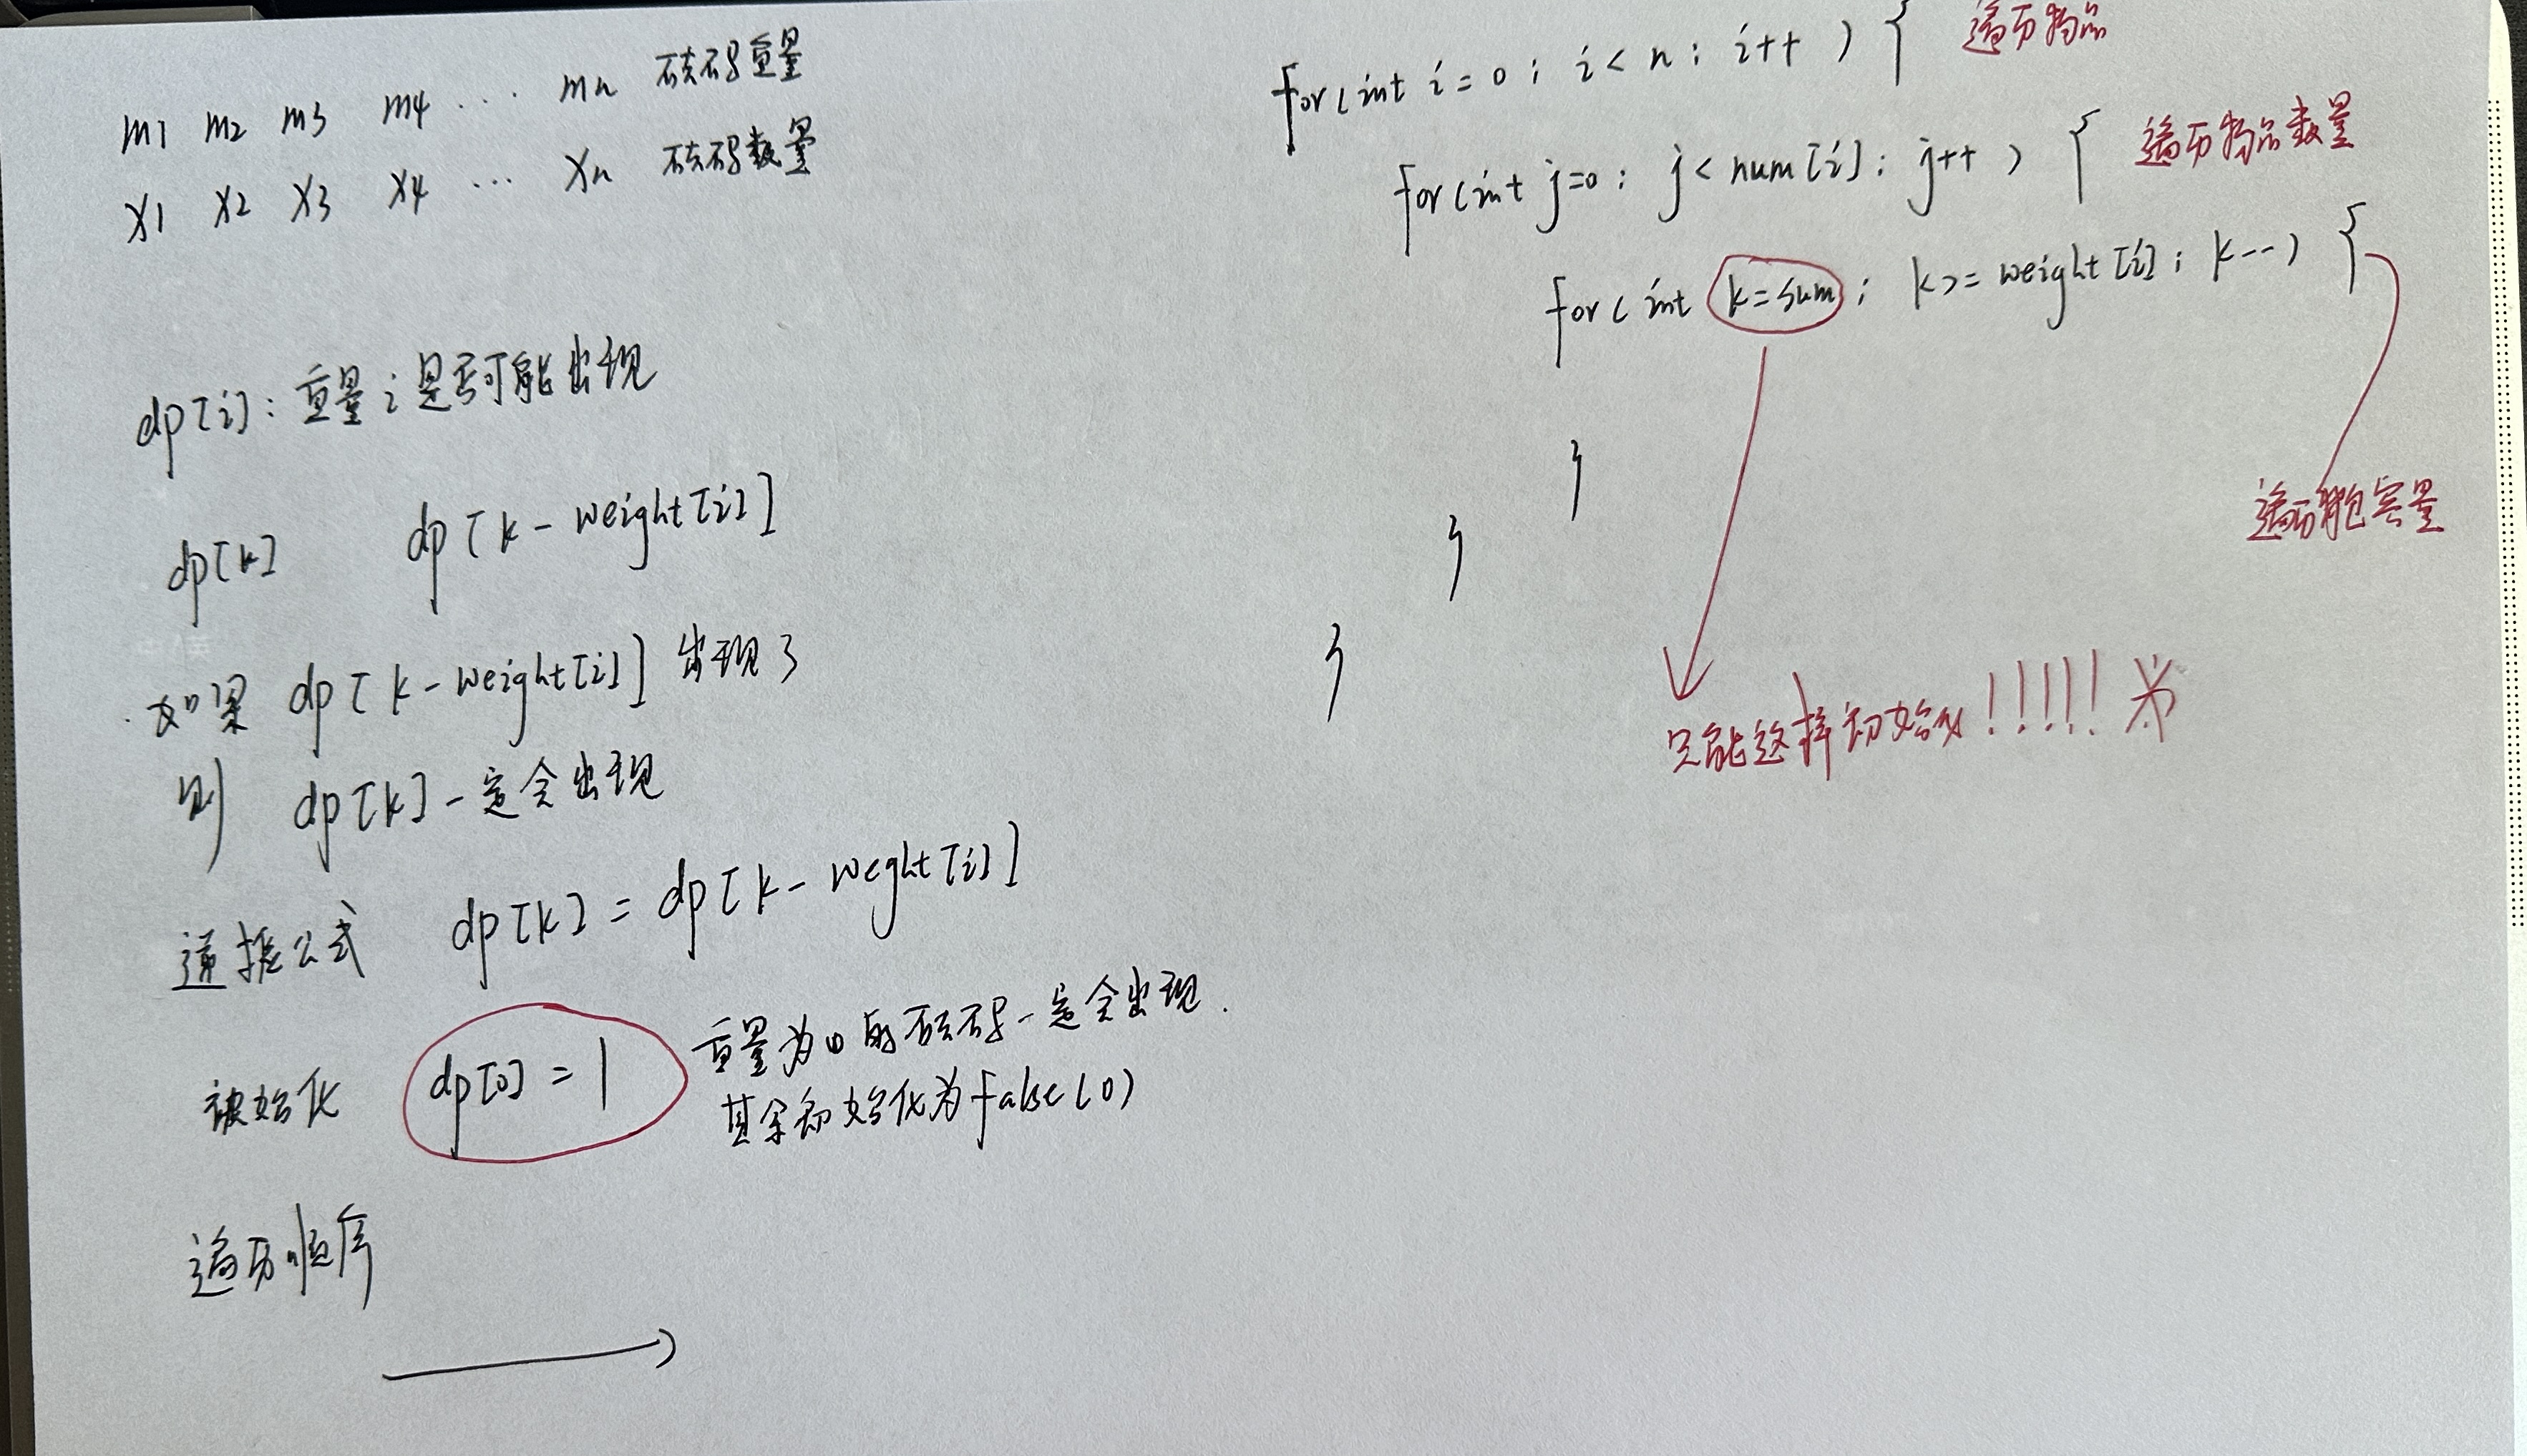 m1 m2 m3 m4 ... mn 砝码重量
x1 x2 x3 x4 ... xn 砝码数量
dp[i]: 重量i是否可能出现
dp[k] dp[k - weight[i]]
如果 dp[k - weight[i]] 出现了
则 dp[k] 一定会出现
递推公式 dp[k] = dp[k - weght[i]]
初始化 dp[0] = 1 重量为0的砝码一定会出现.
其余初始化为false(0)
遍历顺序
for(int i=0; i<n; i++) { 遍历物品
for(int j=0; j<num[i]; j++) { 遍历物品数量
for(int k=sum; k>=weight[i]; k--) {
}
}
}
遍历背包容量
只能这样初始化!!!!!